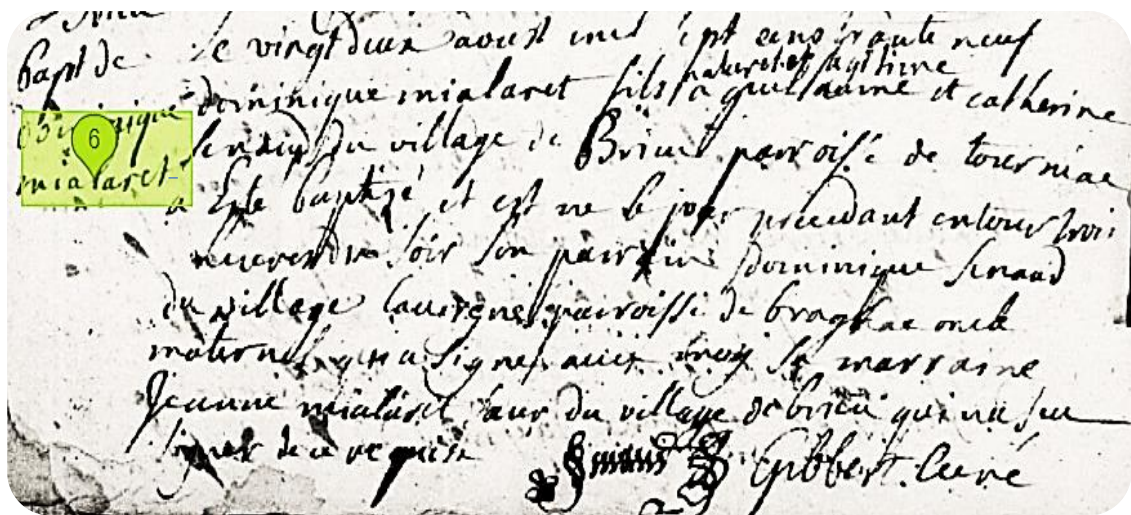 Bapt de
dominique
mialaret
6
le vingt deux aoust mil sept cens trante neuf
dominique mialaret fils naturel et legitime a guillaume et catherine
du village de Brieu parroisse de tourniac
a Esté baptizé et est né le jour precedant entour trois
heures du soir son parrain dominique senaud
du village lavergne parroisse de braghac oncle
maternel qui a signé avec moy sa marraine
Jeanne mialaret sœur du village de brieu qui na sceu
signer de ce requise
Gibbert Curé